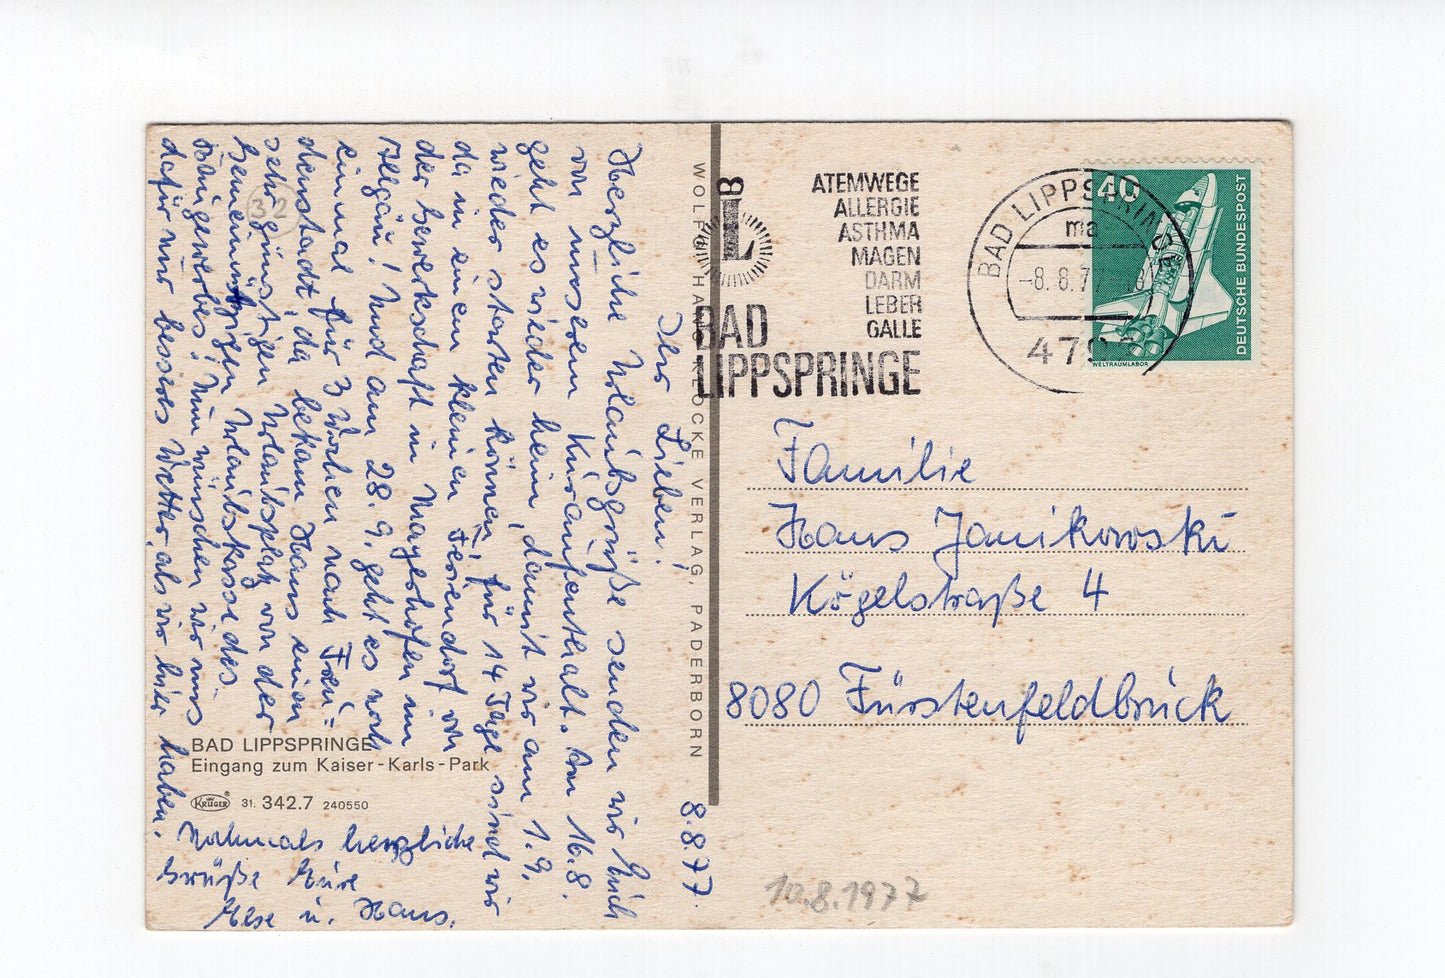 8.8.77.
Ihr Lieben!
Herzliche Urlaubsgrüße senden wir Euch
von unserem Kuraufenthalt. Am 16.8.
geht es wieder heim, damit wir am 1.9.
wieder starten können, für 14 Tage sind wir
da in einem kleinen Feriendorf von
der Gewerkschaft in Mayerhofen im
Allgäu! Und am 28.9. geht es noch
einmal für 3 Wochen nach Freu=
denstadt, da bekam Hans einen
sehr günstigen Urlaubsplatz von der
Gemeinnützigen Urlaubskasse des
Baugewerbes! Nun wünschen wir uns
dafür nur besseres Wetter, als wir hier haben.
Nochmals herzliche
Grüße Eure
Else u. Hans.
32
BAD LIPPSPRINGE
Eingang zum Kaiser-Karls-Park
KRÜGER 31. 342.7 240550
WOLFG. HANS KLOCKE VERLAG, PADERBORN
B
L
BAD
LIPPSPRINGE
ATEMWEGE
ALLERGIE
ASTHMA
MAGEN
DARM
LEBER
GALLE
BAD LIPPSPRINGE
ma
-8.8.77-18
479
40
DEUTSCHE BUNDESPOST
WELTRAUMLABOR
Familie
Hans Janikowski
Kögelstraße 4
8080 Fürstenfeldbrück
10.8.1977